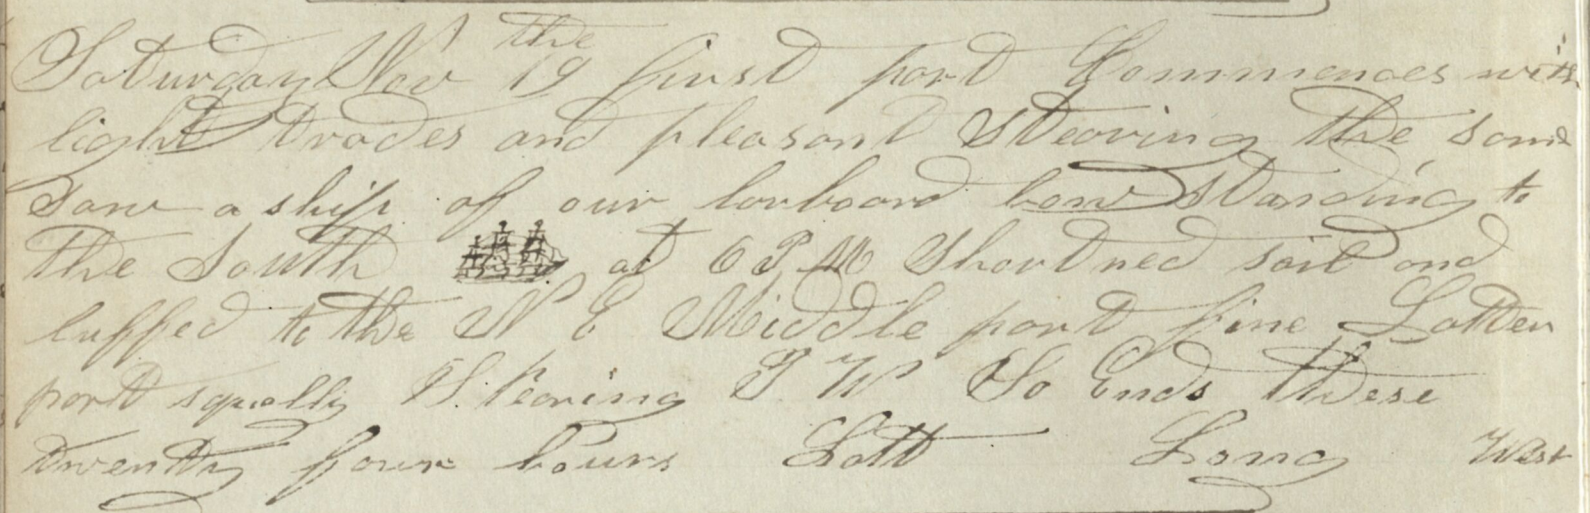 Saturday Nov 19 the first part Commences with
light trades and pleasant Stearing the same
Saw a ship of our larboard bow Standing to
the South at 6 P M Shortned sail and
luffed to the N E Middle part fine Latter
part squally Stearing S W So Ends these
twenty four hours Latt Long West